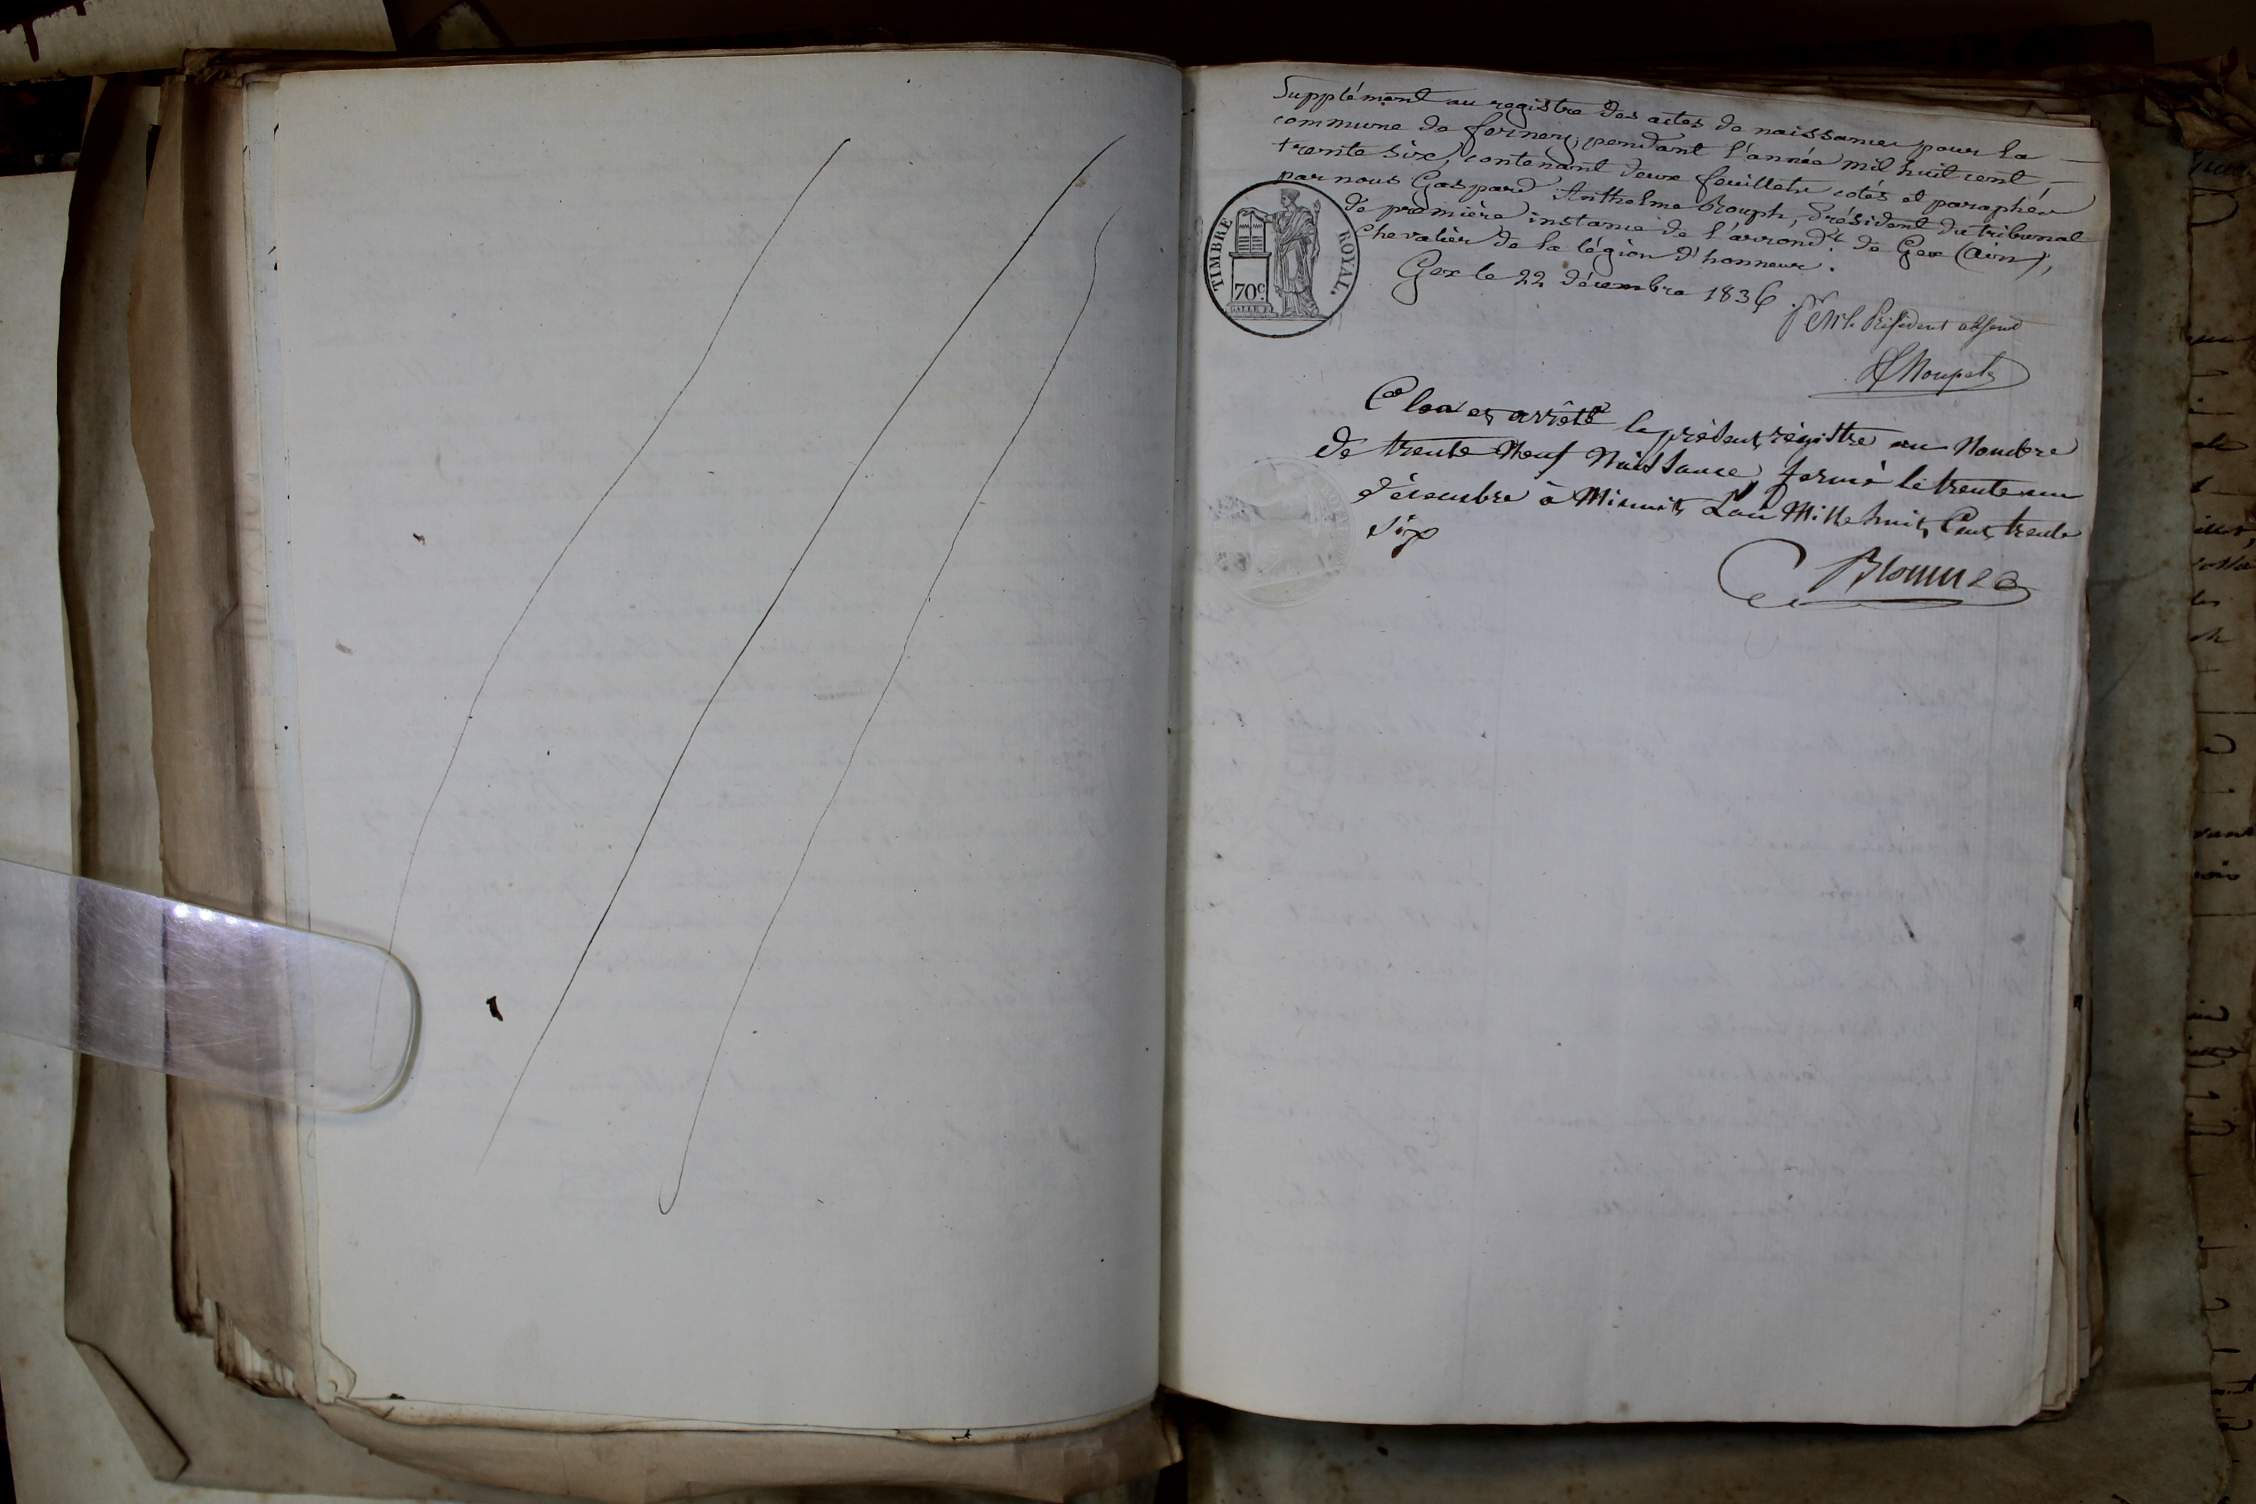 Supplément au registre des actes de naissance pour la —
commune de ferney, pendant l'année mil huit cent —
trente six, contenant deux feuillets cotés et paraphés
par nous Gaspard Anthelme Rouph, Président du tribunal
de première instance de l'arrond.t de Gex (ain),
Chevalier de la légion d'honneur.
Gex le 22 décembre 1836
Mr le Président absent
TIMBRE ROYAL.
70c.
Clos et arrêté le présent régistre au Nombre
de trente Neuf Naissance, fermé le trente un
décembre à Minuit L'an Mille huit Cent trente
Six